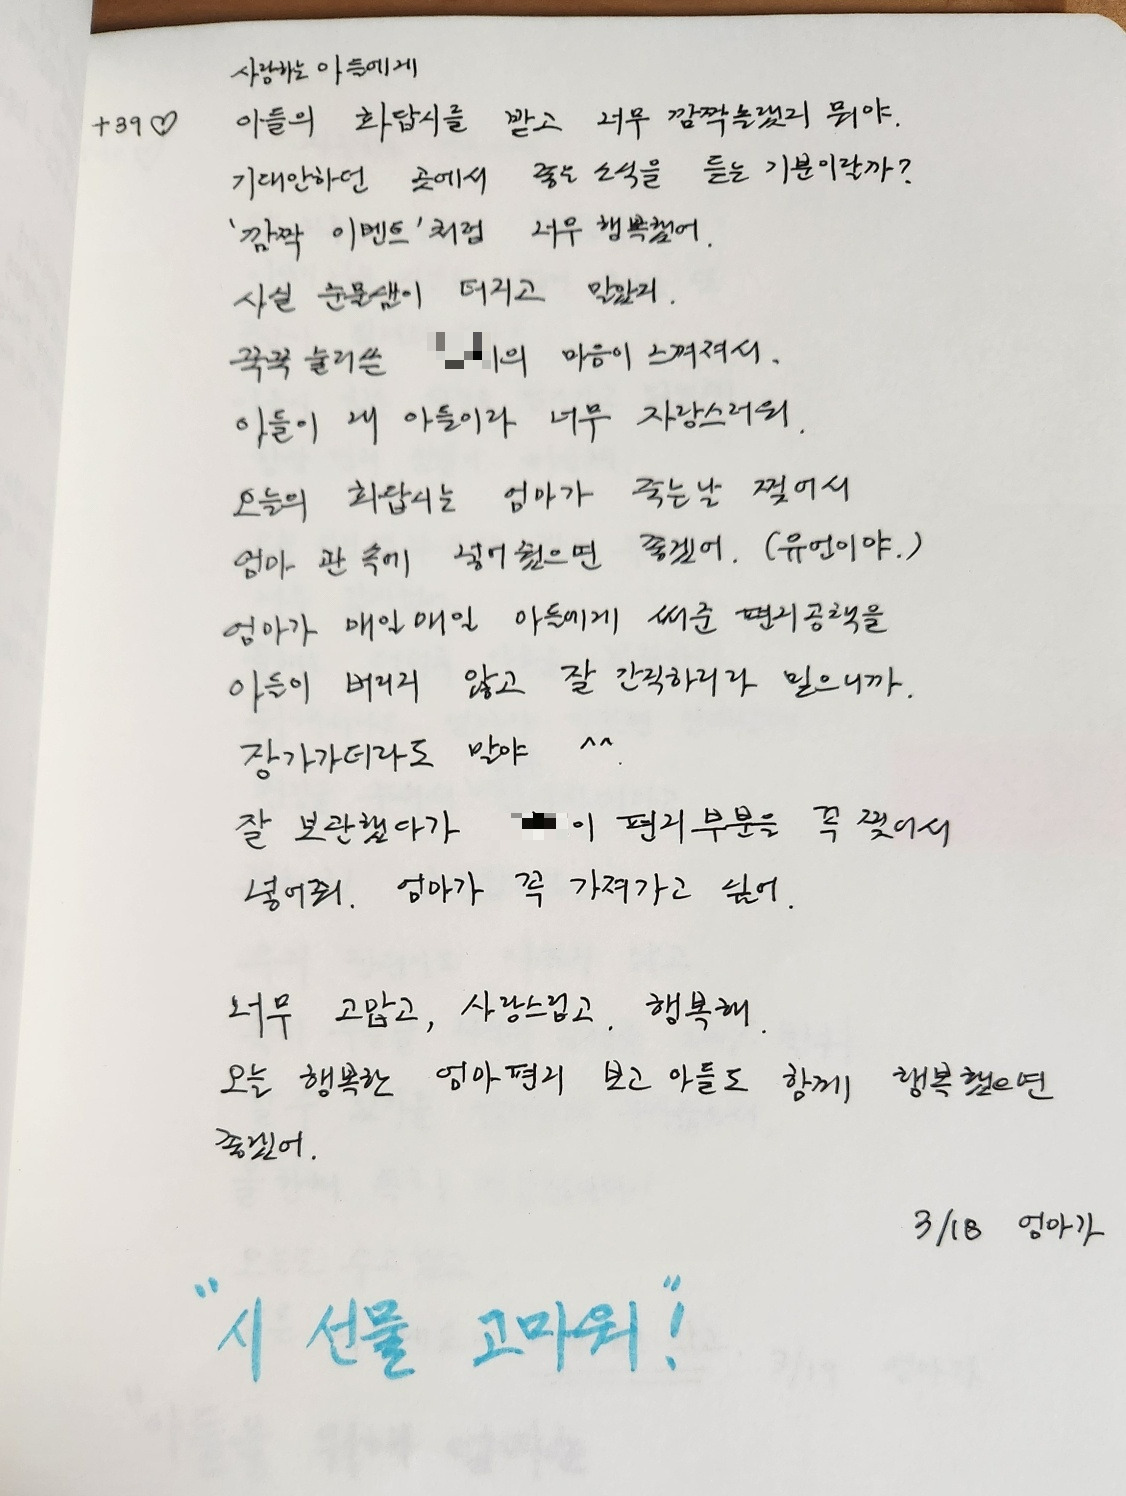 사랑하는 아들에게
+39♡ 아들의 화답시를 받고 너무 깜짝놀랬지 뭐야.
기대안하던 곳에서 좋은 소식을 듣는 기분이랄까?
'깜짝 이벤트'처럼 너무 행복했어.
사실 눈물샘이 터지고 말았지.
꾹꾹 눌러쓴 이의 마음이 느껴져서.
아들이 내 아들이라 너무 자랑스러워.
오늘의 화답시는 엄마가 죽는날 찢어서
엄마 관 속에 넣어줬으면 좋겠어. (유언이야.)
엄마가 매일매일 아들에게 써준 편지공책을
아들이 버리지 않고 잘 간직하리라 믿으니까.
장가가더라도 말야 ^^.
잘 보관했다가 이 편지부분을 꼭 찢어서
넣어줘. 엄마가 꼭 가져가고 싶어.
너무 고맙고, 사랑스럽고, 행복해.
오늘 행복한 엄마편지 보고 아들도 함께 행복했으면
좋겠어.
3/18 엄마가
"시 선물 고마워"!